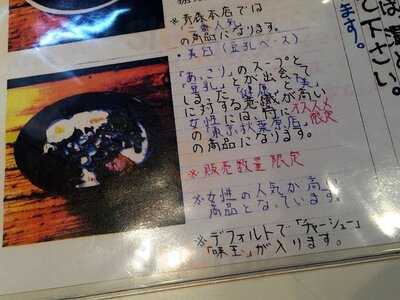 ※青森本店では
の商品になります。
・美白(豆乳ベース)
「あっさり」のスープと
「豆乳」とが出会って
しまた。健康と美
に対する意識が高い
女性には、特にオススメ
の「東京、秋葉原店」限定
の商品になります。
※販売数量限定
※女性の人気が高い
商品となっています。
※デフォルトで「チャーシュー」
「味玉」が入ります。
ます。
て下さい。